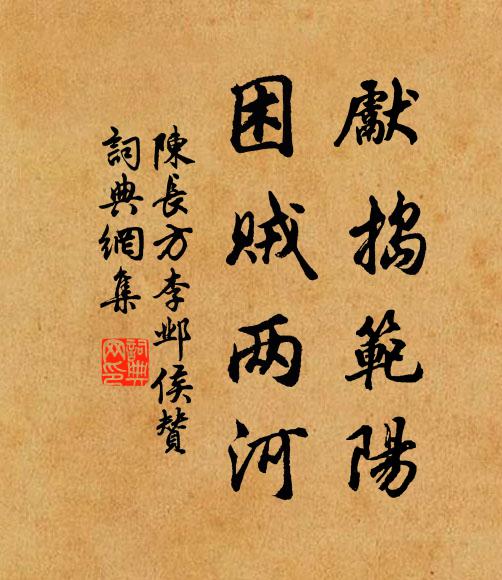 獻搗範陽
困賊两河
陳長方李邺侯贊
詞典網集
詞典
网印